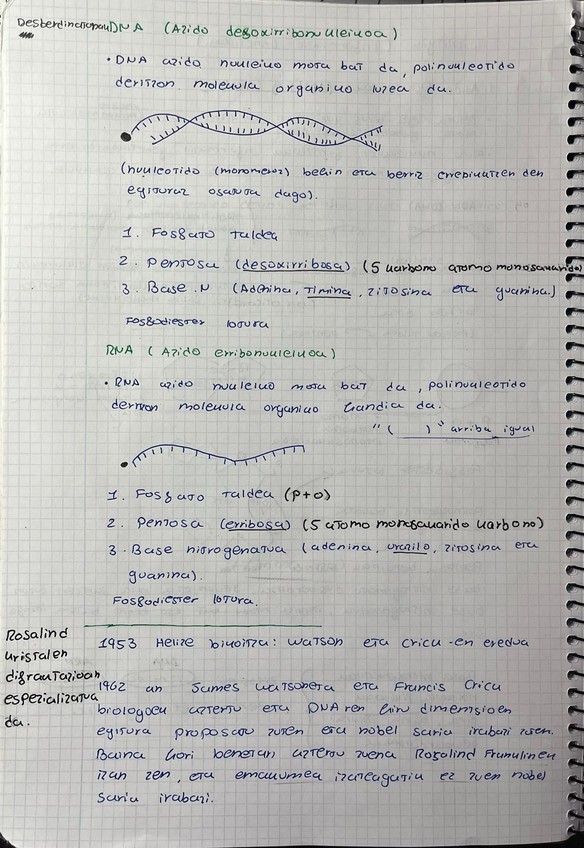 Desberdintasunak DNA (Azido desoxirribonukleikoa)
• DNA azido nukleiko mota bat da, polinukleotido
deritzon molekula organiko luzea da.
(nukleotido (monomeroz) behin eta berriz errepikatzen den
egituraz osatuta dago).
1. Fosfato taldea
2. Pentosa (desoxirribosa) (5 karbono atomo monosakarido)
3. Base N (Adenina, Timina, zitosina eta guanina.)
Fosfodiester lotura
RNA (Azido erribonukleikoa)
• RNA azido nukleiko mota bat da, polinukleotido
deritzon molekula organiko handia da.
"( )" arriba igual
1. Fosfato taldea (P+O)
2. Pentosa (erribosa) (5 atomo monosakarido karbono)
3. Base nitrogenatua (adenina, urazilo, zitosina eta
guanina).
Fosfodiester lotura.
Rosalind
kristalen
difraktazioan
espezializatua
da.
1953 Helize bikoitza: Watson eta Crick-en eredua
1962 an James Watsoneta eta Francis Crick
biologoek aztertu eta DNAren hiru dimentsioen
egitura proposatu zuten eta nobel saria irabazi zuten.
Baina hori benetan aztertu zuena Rosalind Franklinek
izan zen, eta emakumea izateagatik ez zuen nobel
saria irabazi.